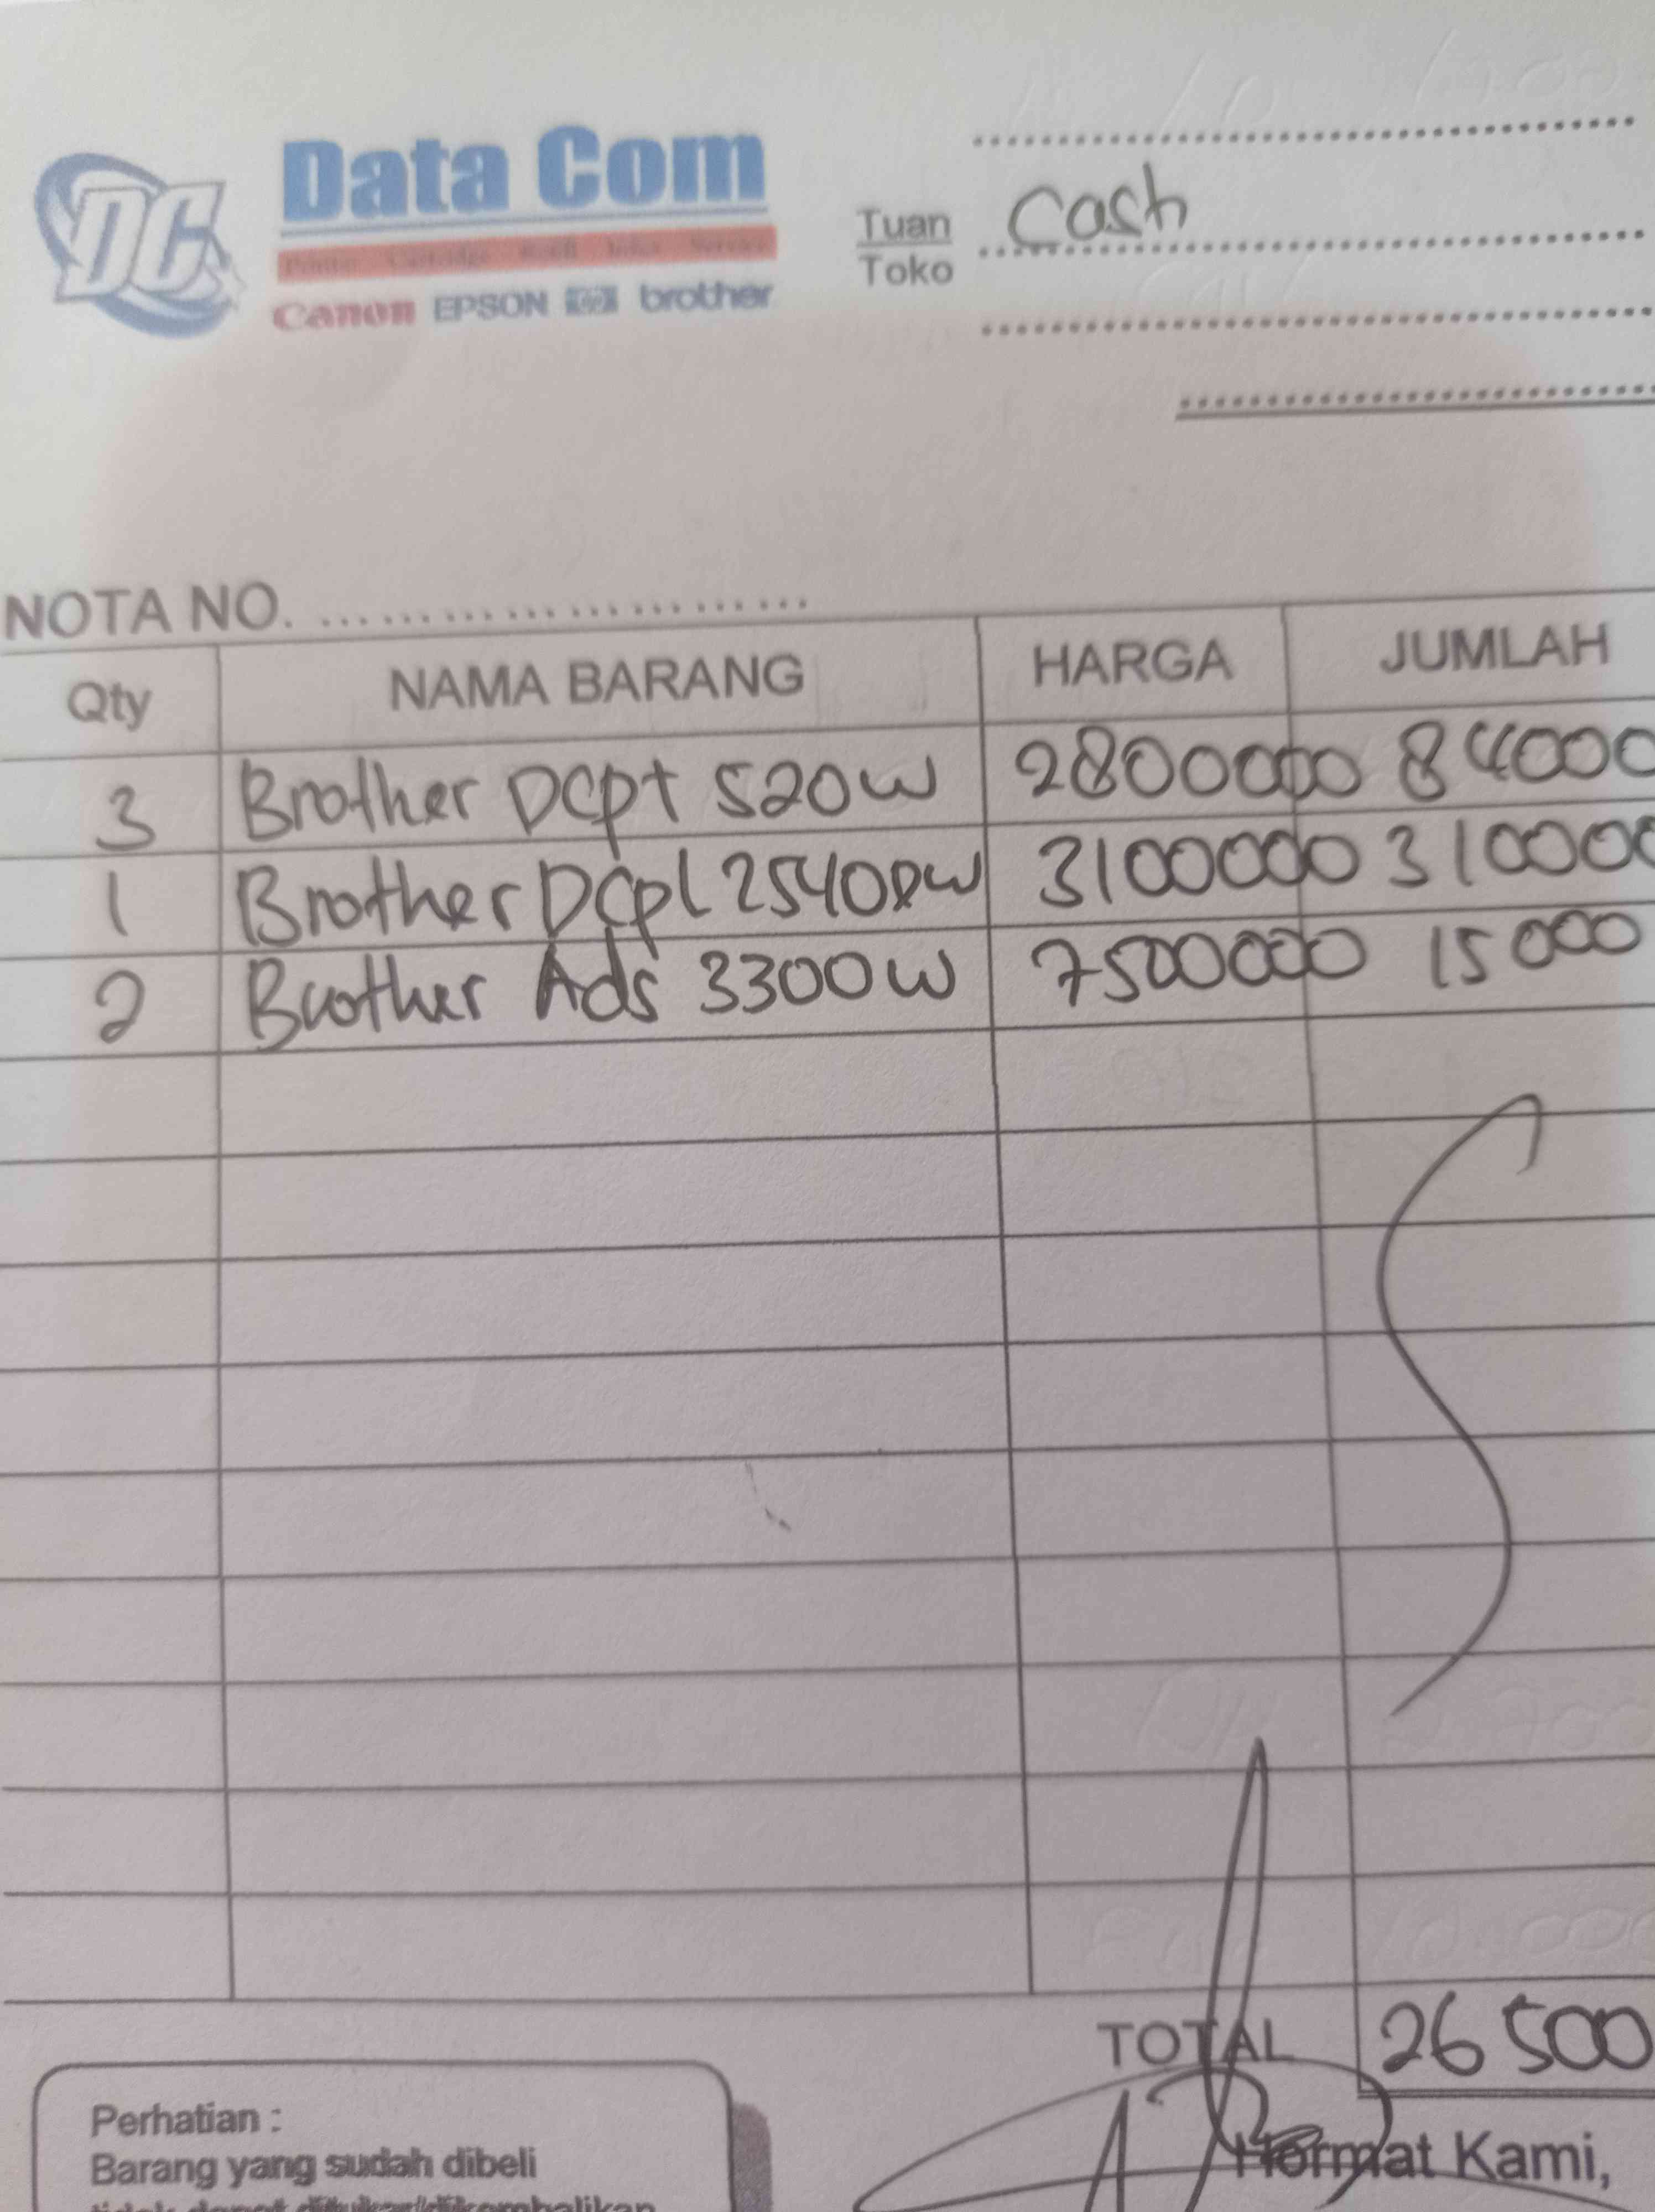 DC
Data Com
Printer Cartridge Refill Infus Service
Canon EPSON hp brother
Tuan
Toko
Cash
NOTA NO. ........................
Qty NAMA BARANG HARGA JUMLAH
3 Brother Dcpt 520W 2800000 84000
1 Brother Dcpl 2540DW 3100000 310000
2 Brother Ads 3300W 7500000 15000
TOTAL 26500
Perhatian :
Barang yang sudah dibeli
tidak dapat ditukar/dikembalikan
Hormat Kami,